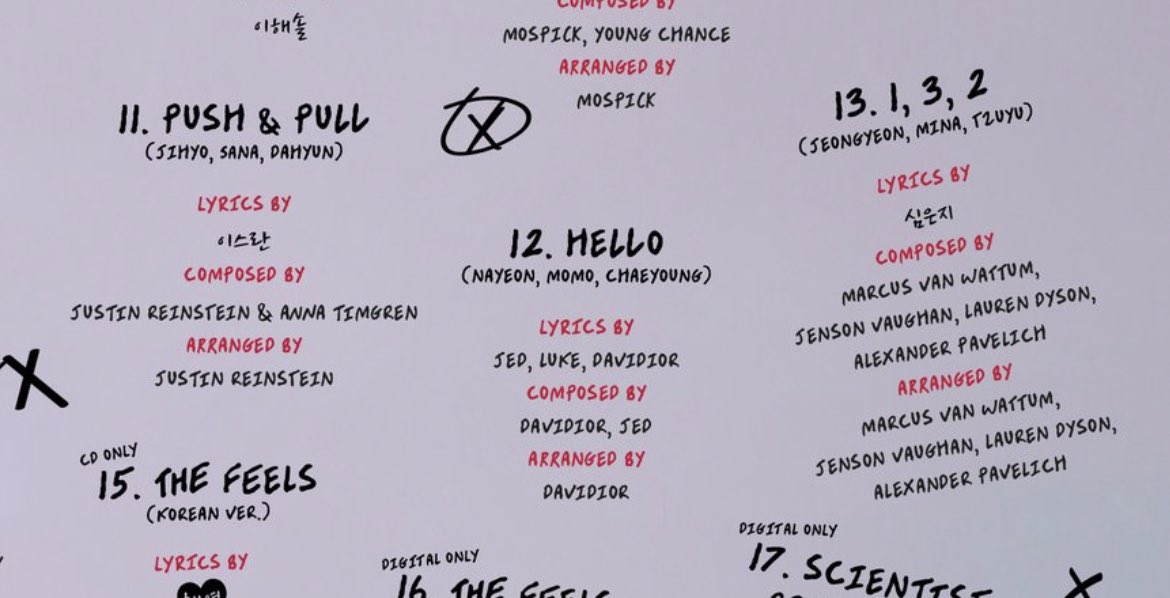 이해솔
COMPOSED BY
MOSPICK, YOUNG CHANCE
ARRANGED BY
MOSPICK
11. PUSH & PULL
(JIHYO, SANA, DAHYUN)
LYRICS BY
이스란
COMPOSED BY
JUSTIN REINSTEIN & ANNA TIMGREN
ARRANGED BY
JUSTIN REINSTEIN
12. HELLO
(NAYEON, MOMO, CHAEYOUNG)
LYRICS BY
JED, LUKE, DAVIDIOR
COMPOSED BY
DAVIDIOR, JED
ARRANGED BY
DAVIDIOR
13. 1, 3, 2
(JEONGYEON, MINA, TZUYU)
LYRICS BY
심은지
COMPOSED BY
MARCUS VAN WATTUM,
JENSON VAUGHAN, LAUREN DYSON,
ALEXANDER PAVELICH
ARRANGED BY
MARCUS VAN WATTUM,
JENSON VAUGHAN, LAUREN DYSON,
ALEXANDER PAVELICH
CD ONLY
15. THE FEELS
(KOREAN VER.)
LYRICS BY
DIGITAL ONLY
16. THE FEELS
DIGITAL ONLY
17. SCIENTIST